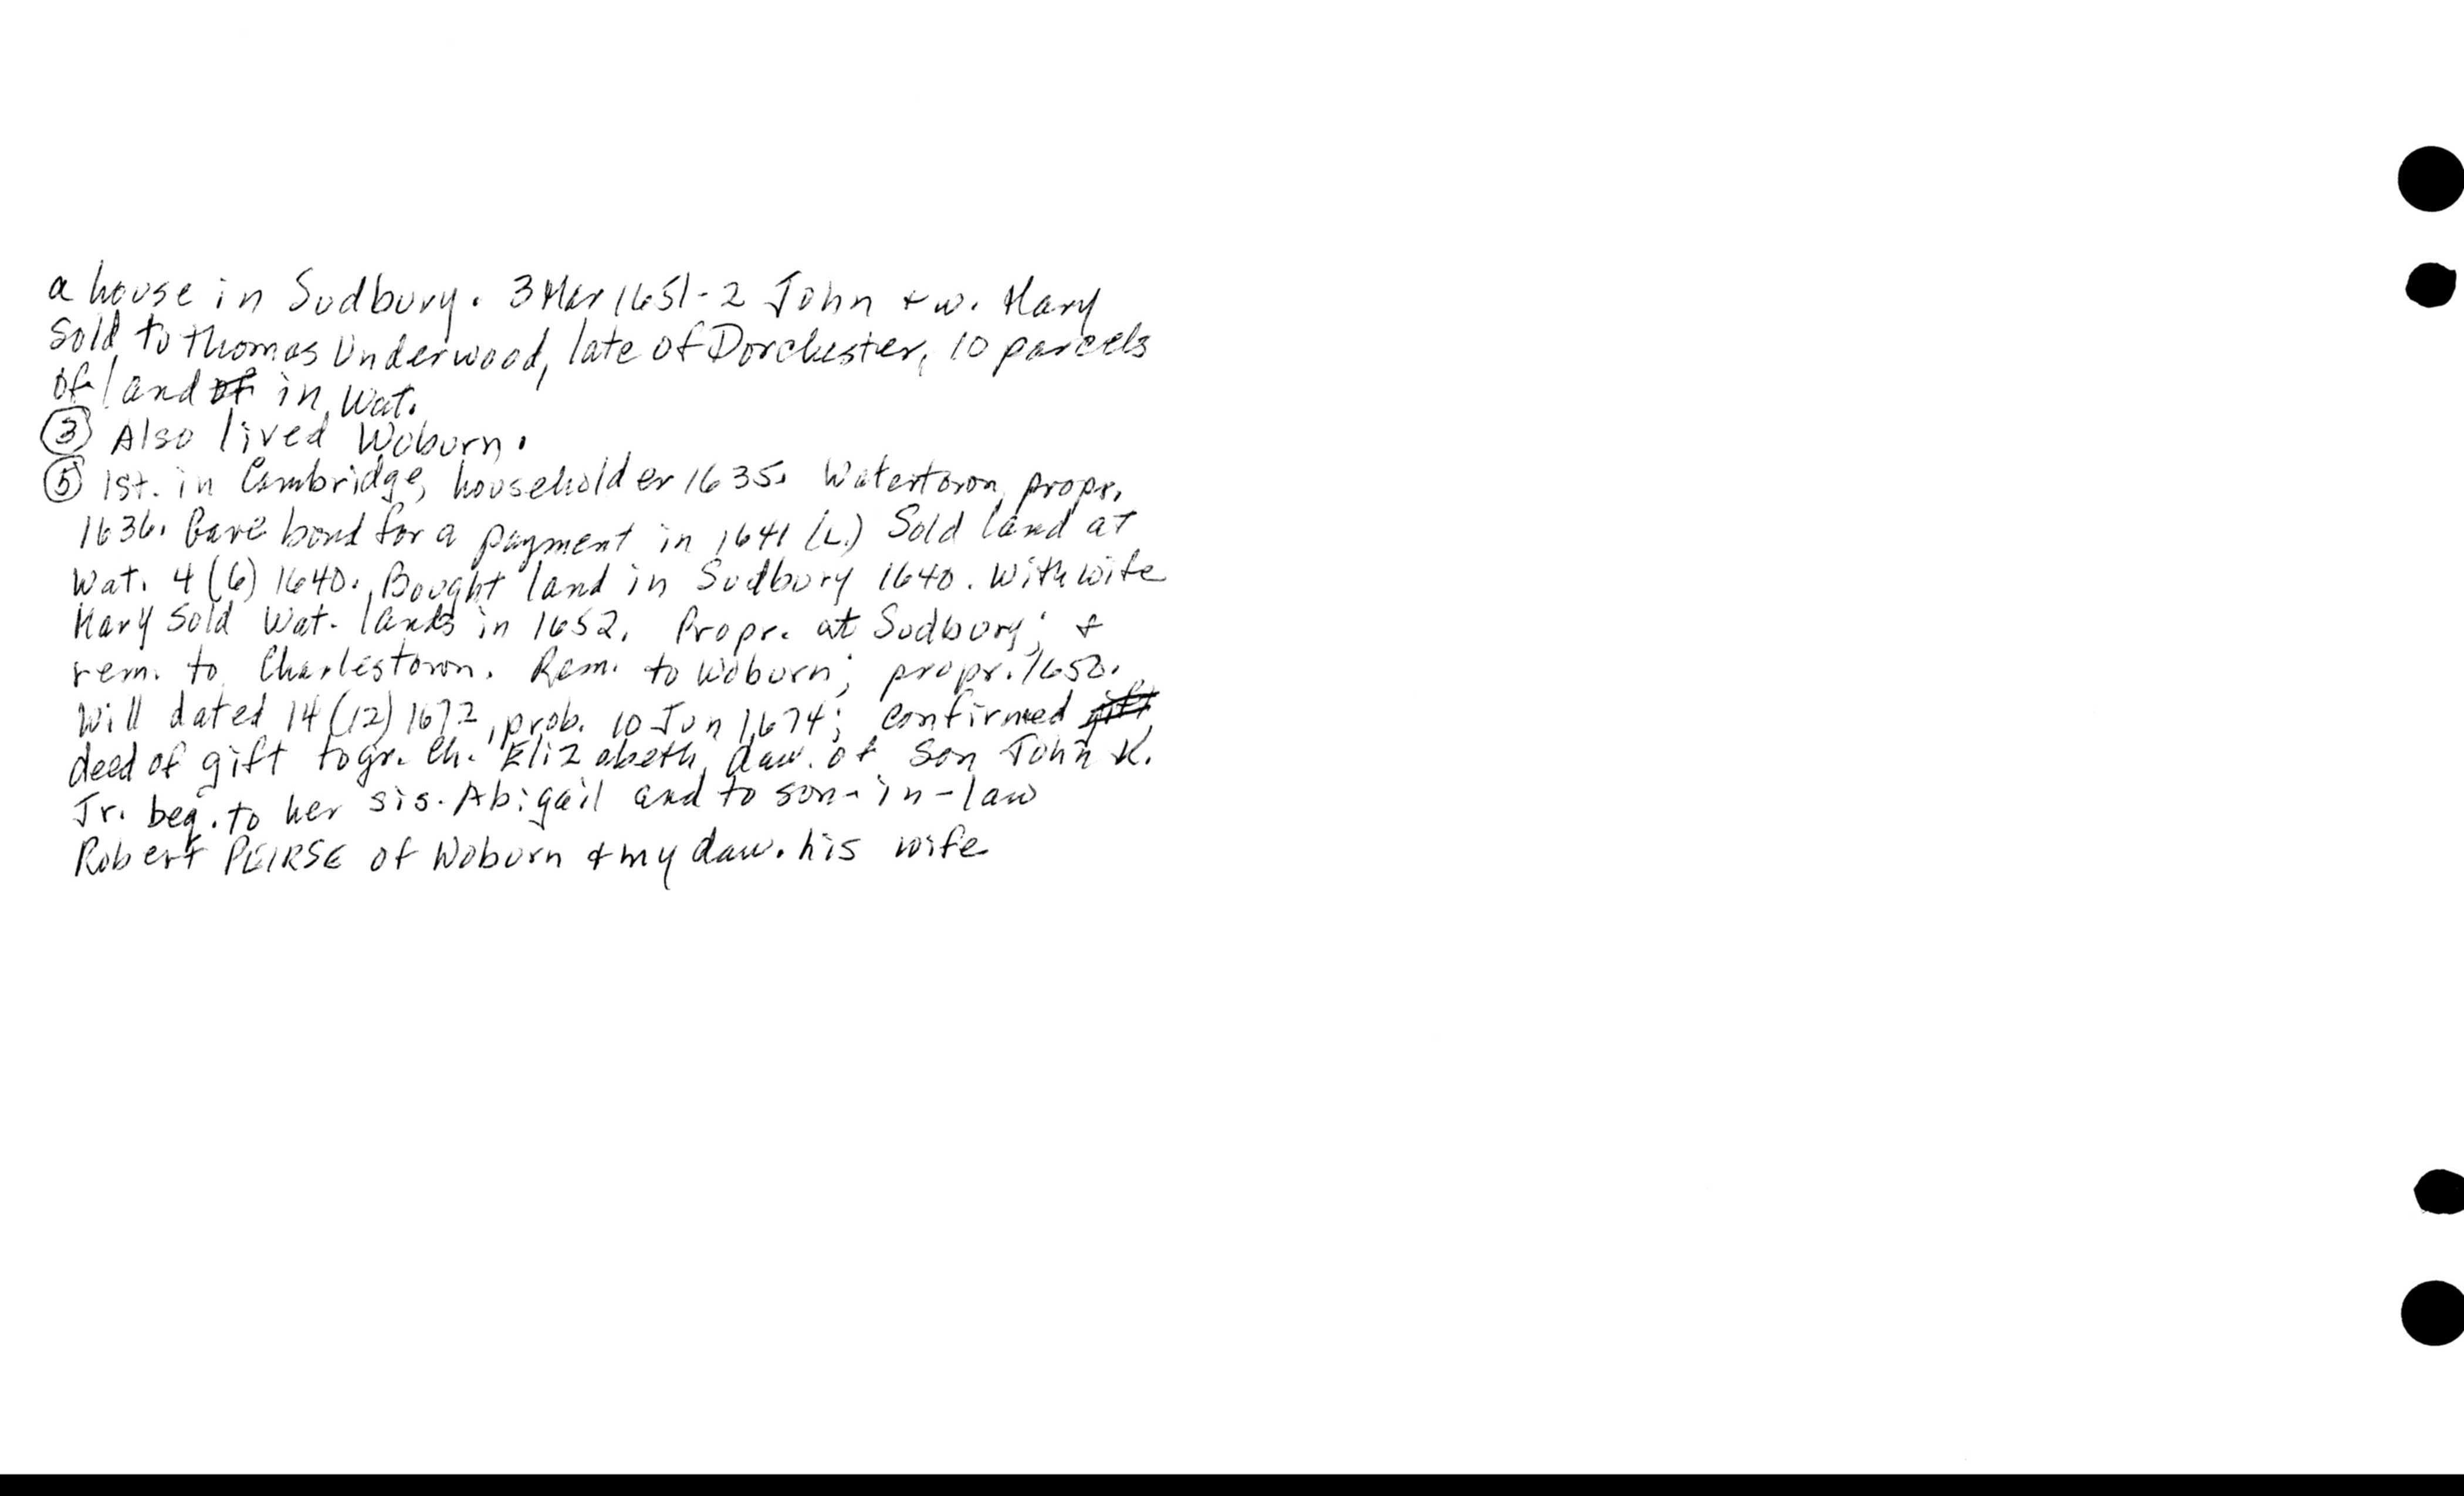 a house in Sudbury. 3 Mar 1651-2 John + w. Mary
sold to Thomas Underwood, late of Dorchester, 10 parcels
of land of in Wat.
③ Also lived Woburn.
⑤ 1st. in Cambridge, householder 1635. Watertown, propr.
1636. Gave bond for a payment in 1641 (L.) Sold land at
Wat. 4 (6) 1640. Bought land in Sudbury 1640. With wife
Mary sold Wat. lands in 1652. Propr. at Sudbury; +
rem. to Charlestown. Rem. to Woburn; propr. 1650.
Will dated 14 (12) 1672, prob. 10 Jun 1674; confirmed gift
deed of gift to gr. ch. Elizabeth, dau. of son John K.
Jr. beq. to her sis. Abigail and to son-in-law
Robert PEIRSE of Woburn + my dau. his wife